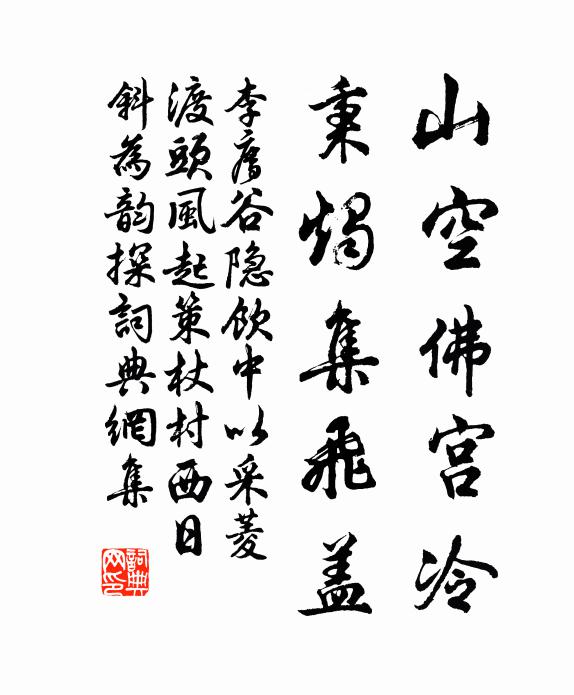 山空佛宫冷
秉燭集飛蓋
李谷隐飲中以采菱
渡頭風起策杖村西日
斜為韵探詞典網集
詞典
网印